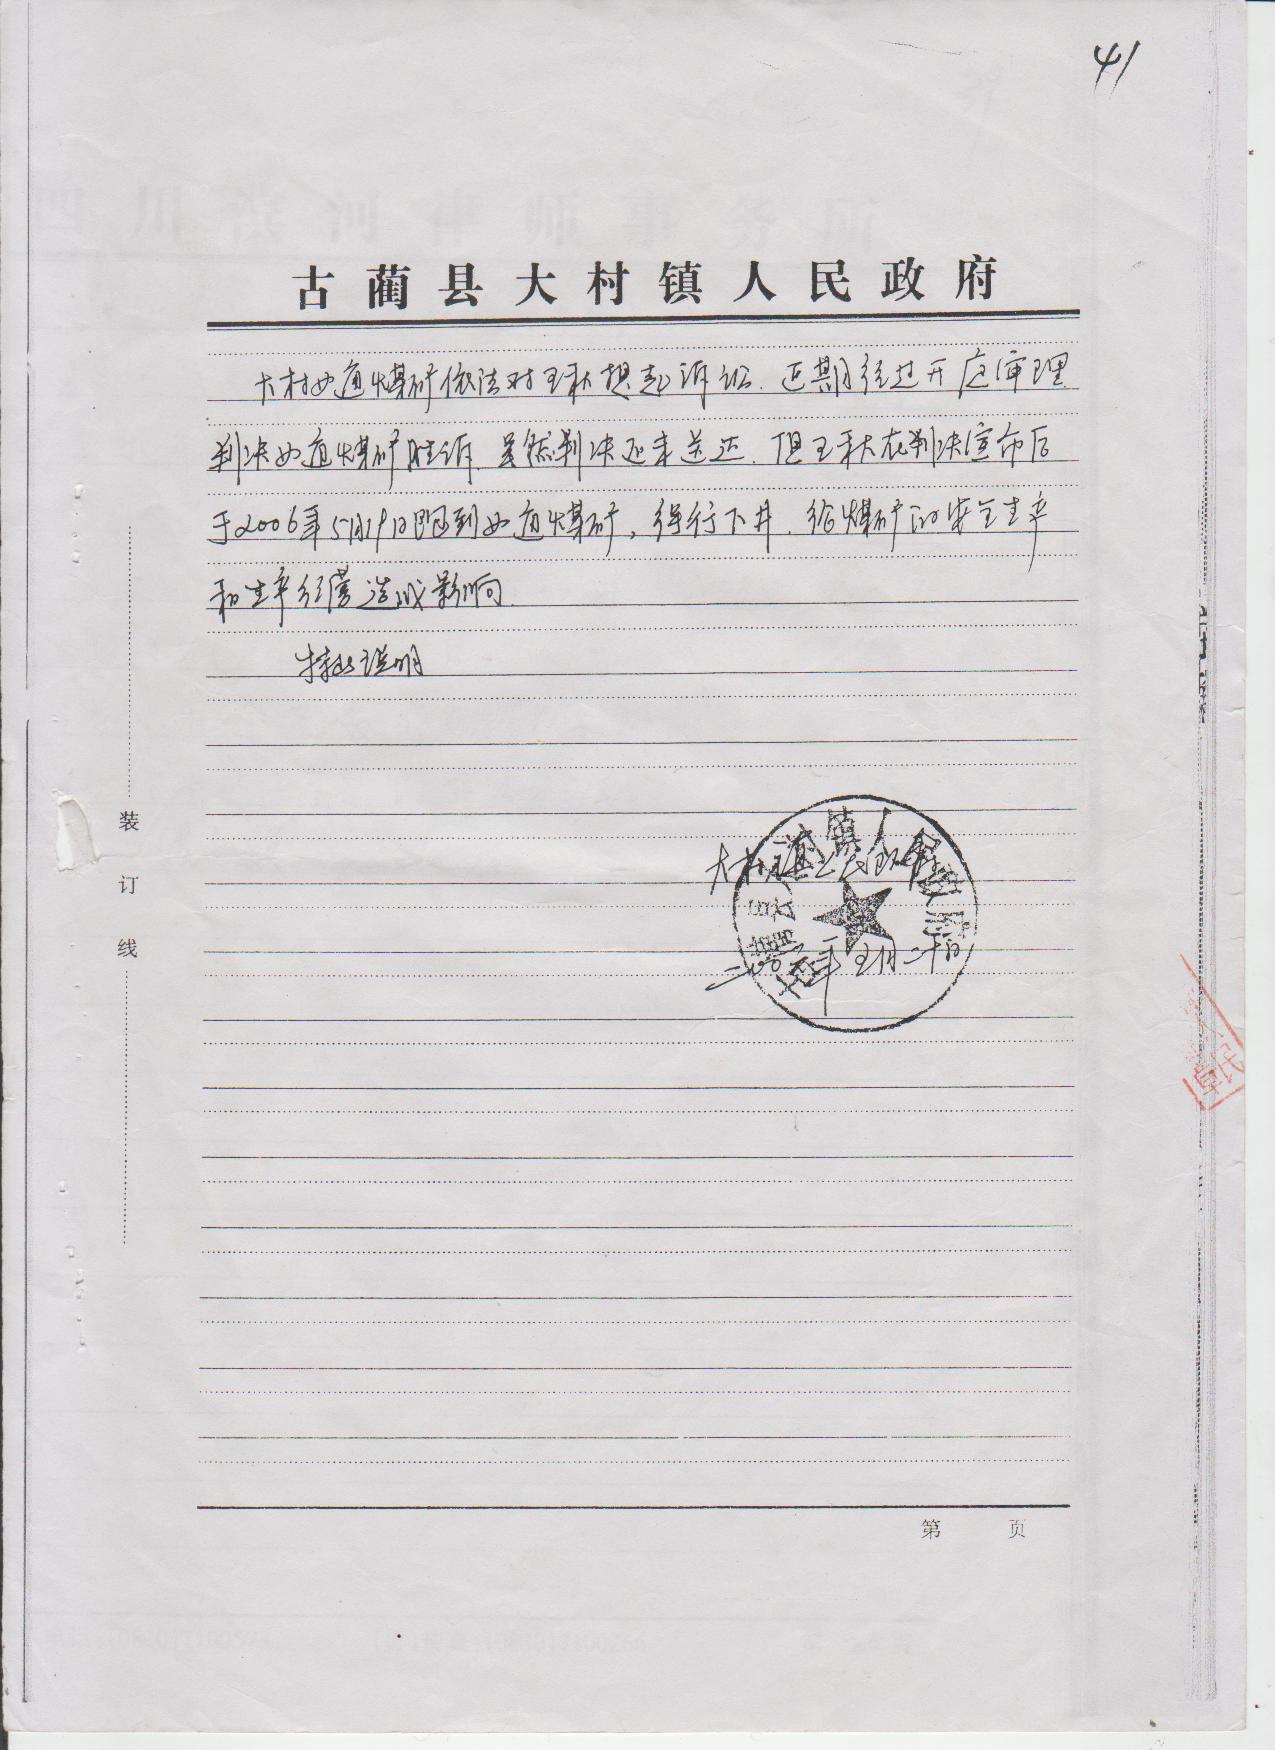 41
古蔺县大村镇人民政府
大村如通煤矿依法对王秋提起诉讼.近期经过开庭审理
判决如通煤矿胜诉.虽然判决还未送达.但王秋在判决宣布后
于2006年5月19日跑到如通煤矿,强行下井.给煤矿的安全生产
和生产经营造成影响.
特此说明
大村镇人民政府
二00六年五月二十日
装
订
线
第 页